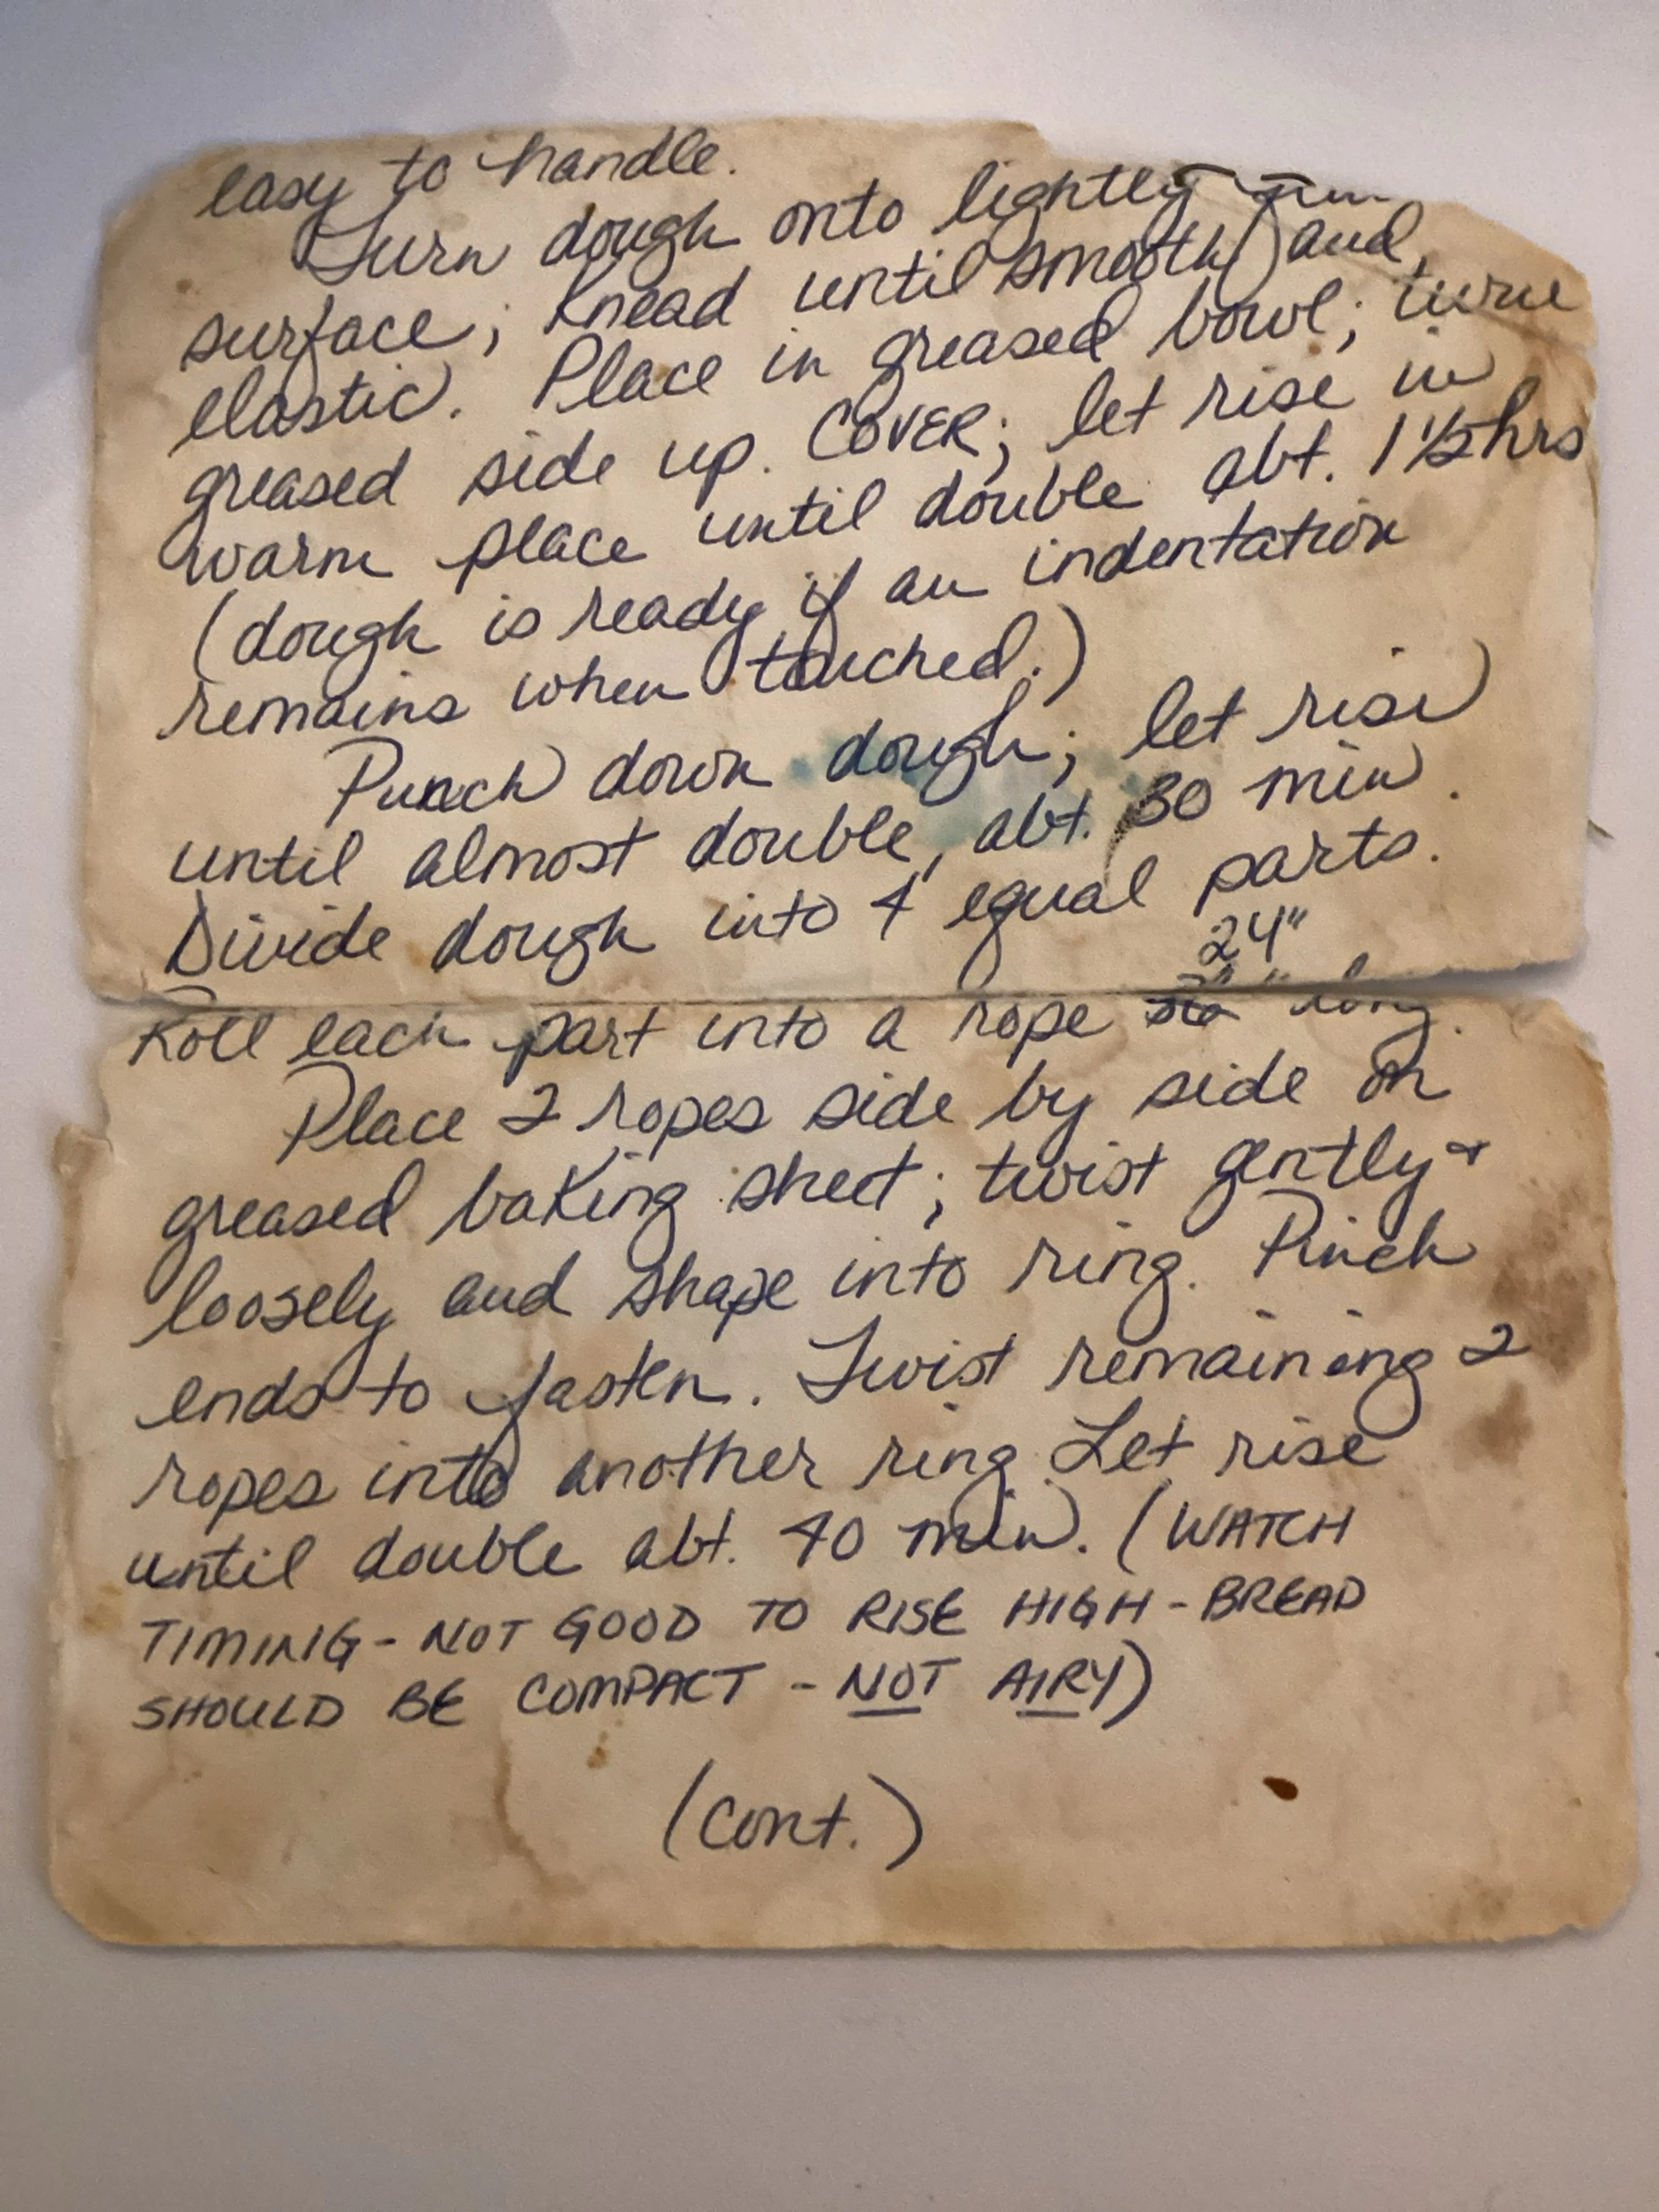 easy to handle.
Turn dough onto lightly
surface; Knead until smooth and
elastic. Place in greased bowl; turn
greased side up. COVER; let rise in
warm place until double abt. 1 1/2 hrs
(dough is ready if an indentation
remains when touched.)
Punch down dough; let rise
until almost double, abt. 30 min.
Divide dough into 4 equal parts.
24"
Roll each part into a rope long.
Place 2 ropes side by side on
greased baking sheet; twist gently +
loosely and shape into ring. Pinch
ends to fasten. Twist remaining 2
ropes into another ring. Let rise
until double abt. 40 min. (WATCH
TIMING - NOT GOOD TO RISE HIGH - BREAD
SHOULD BE COMPACT - NOT AIRY)
(Cont.)